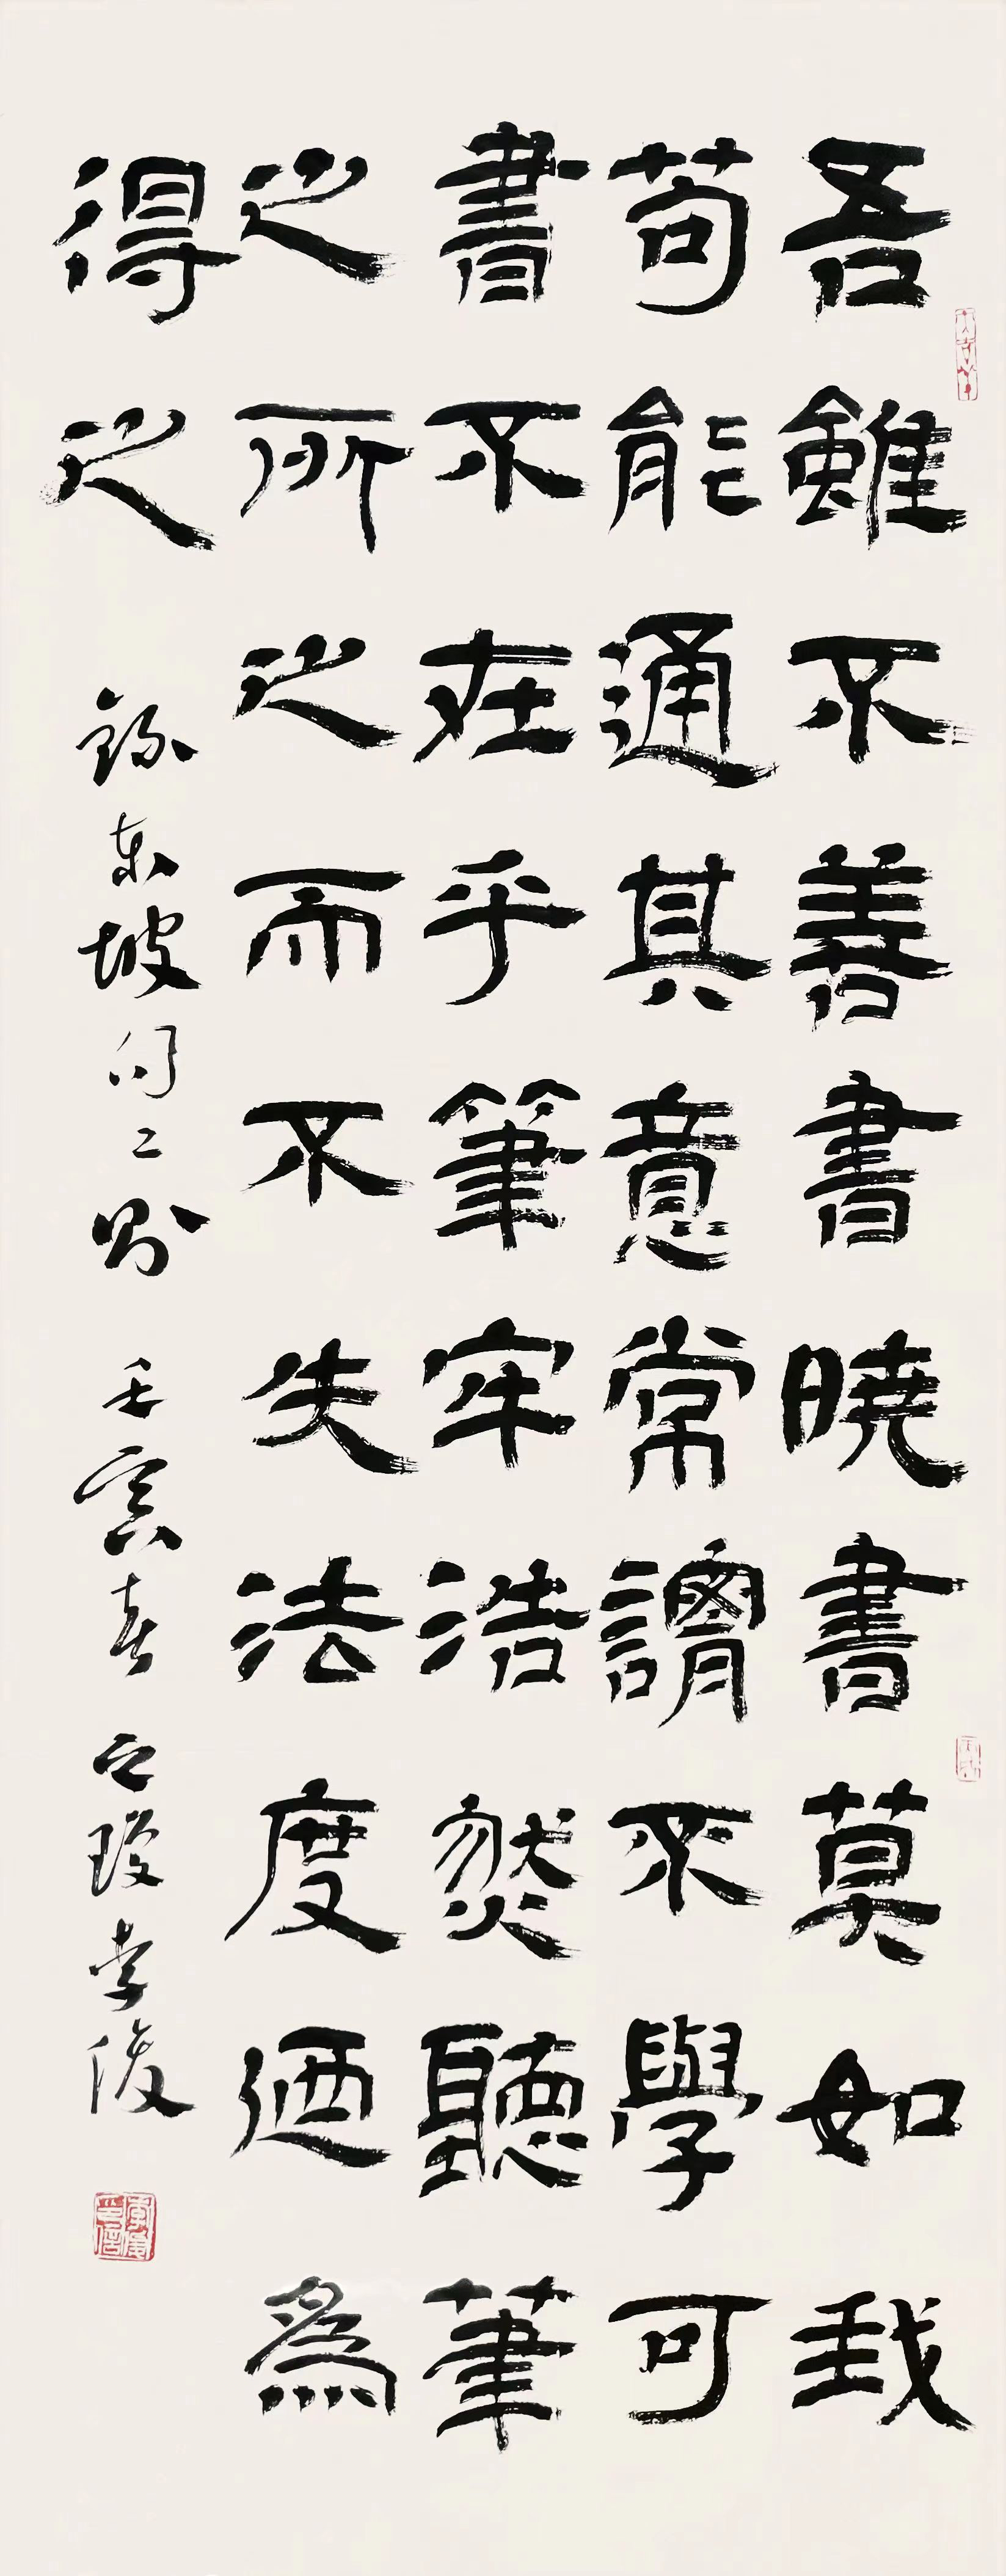 吾雖不善書曉書莫如我
苟能通其意常謂不學可
書不在乎筆牢浩然聽筆
之所之而不失法度迺為
得之
錄東坡句二則 壬寅春 李俊